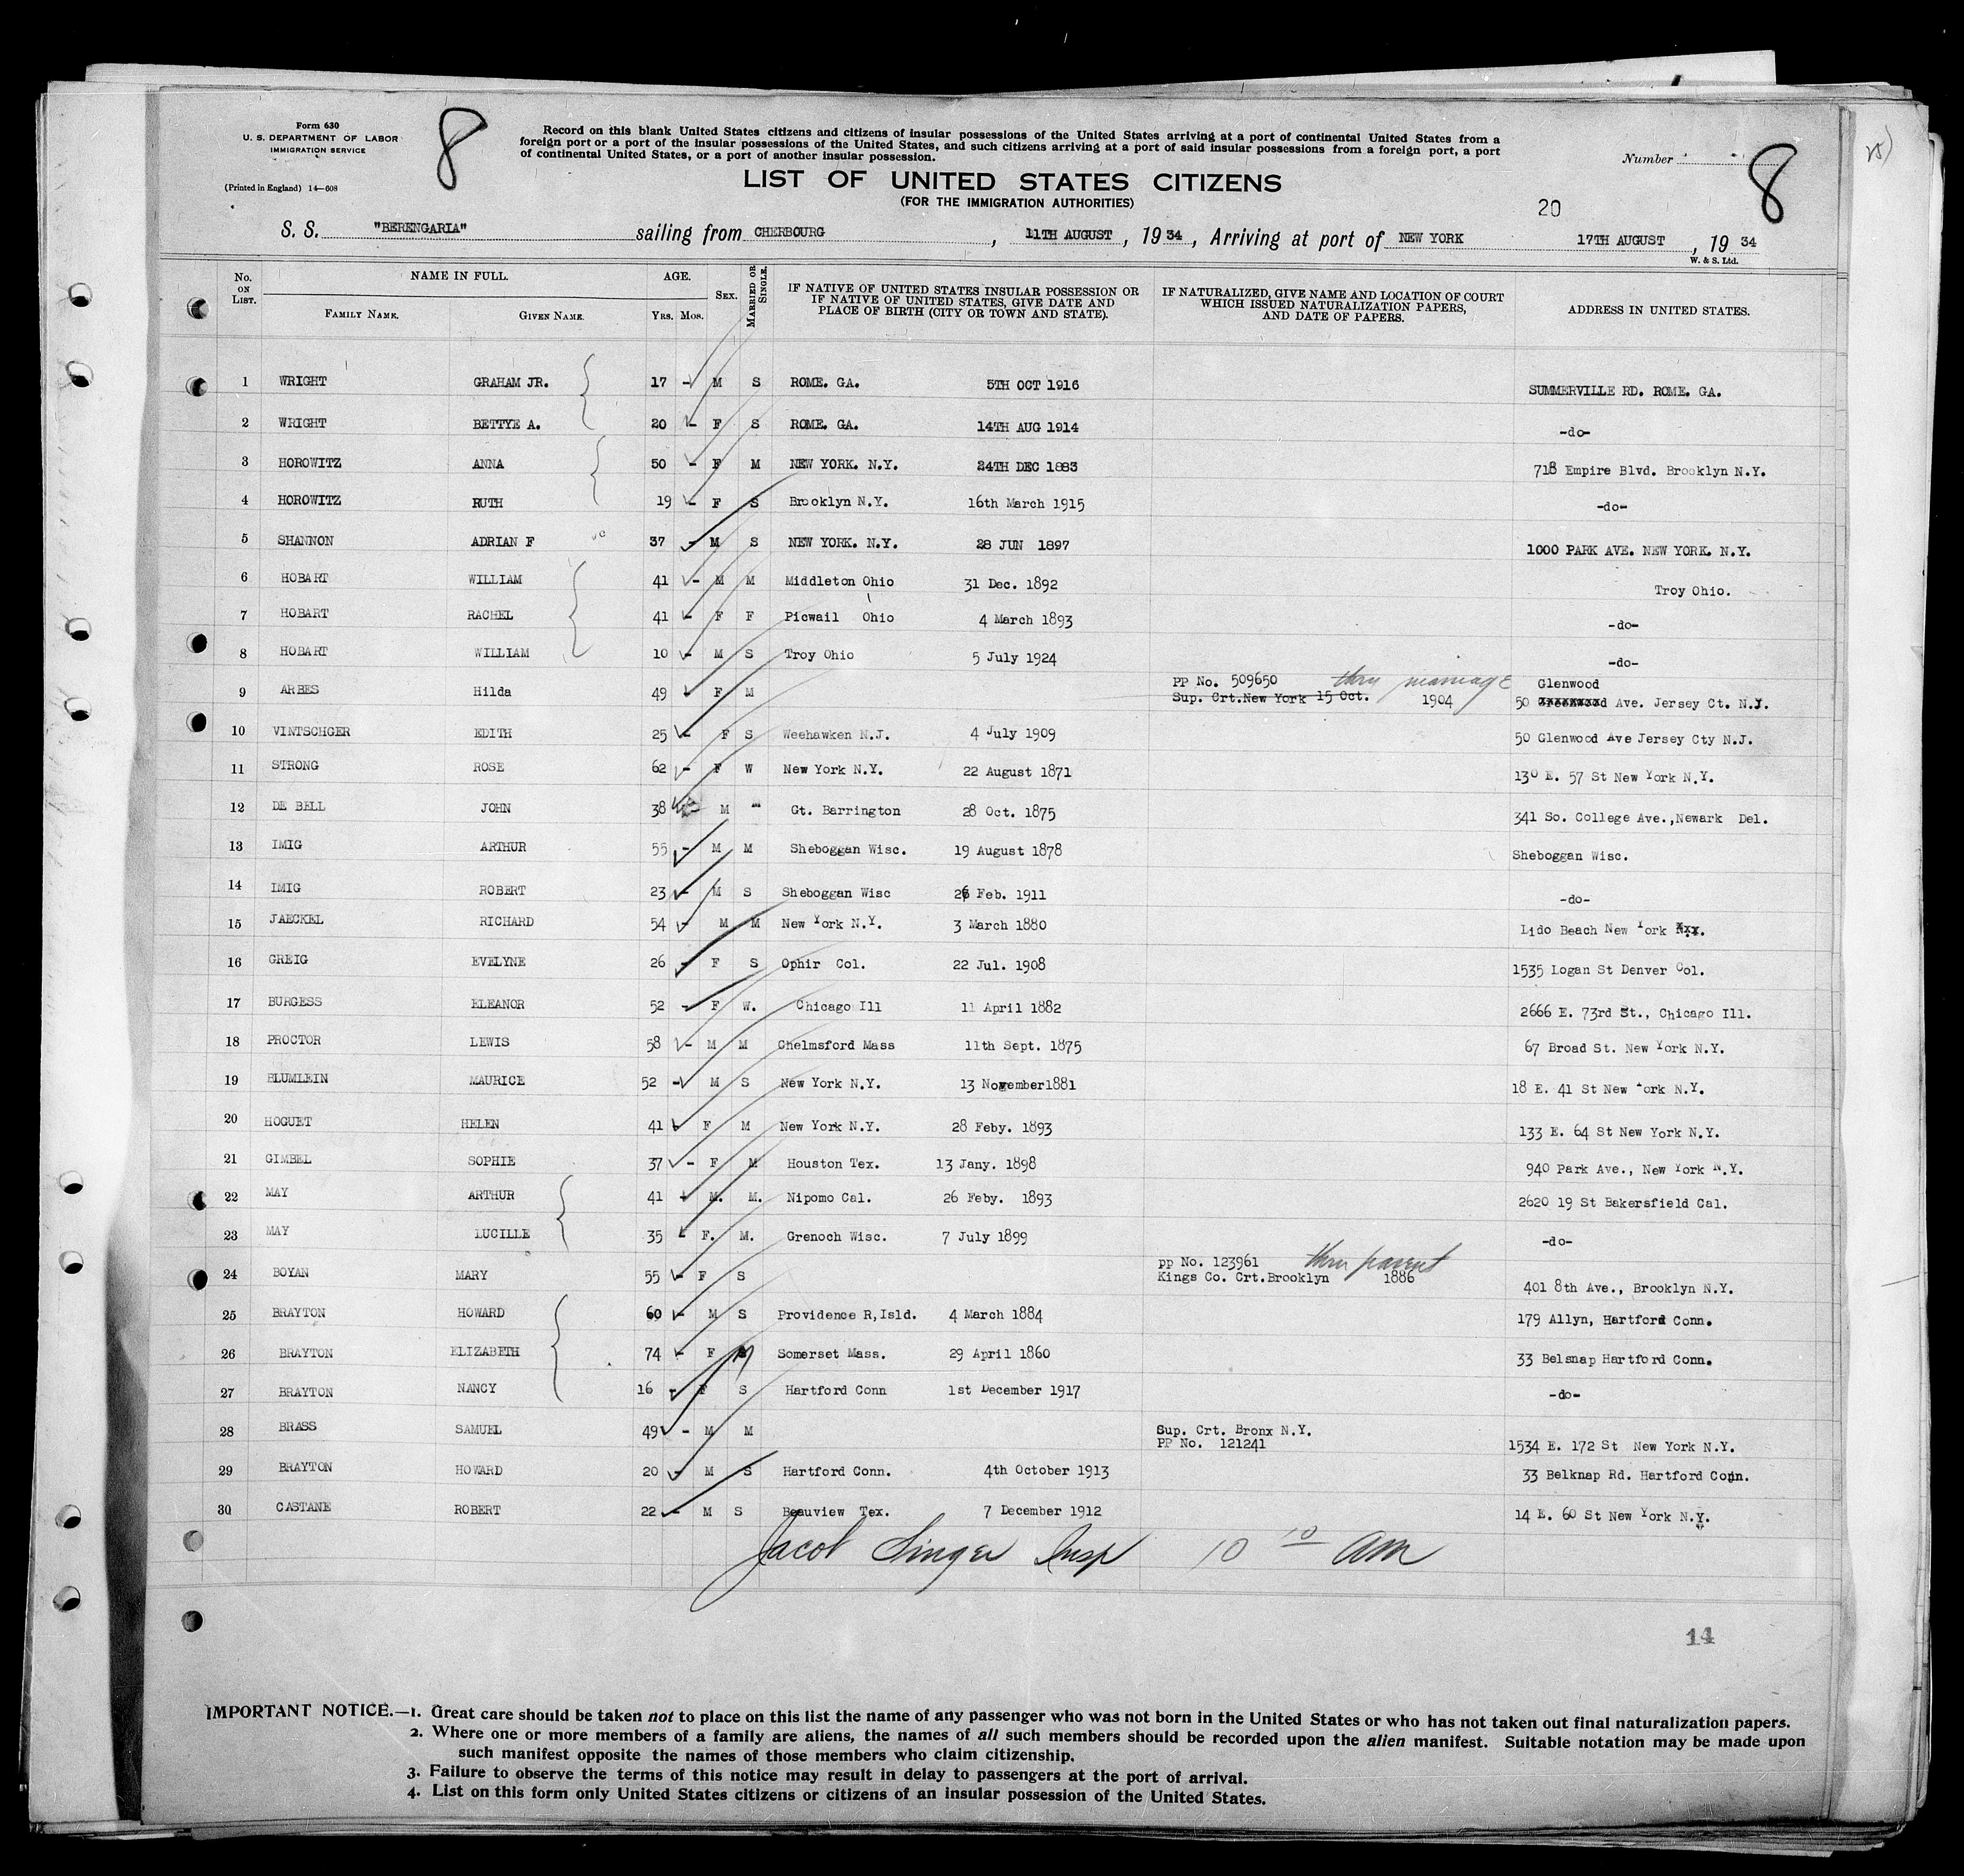 Form 630
U. S. DEPARTMENT OF LABOR
IMMIGRATION SERVICE
(Printed in England) 14—608
8
Record on this blank United States citizens and citizens of insular possessions of the United States arriving at a port of continental United States from a
foreign port or a port of the insular possessions of the United States, and such citizens arriving at a port of said insular possessions from a foreign port, a port
of continental United States, or a port of another insular possession.
Number
8
LIST OF UNITED STATES CITIZENS
(FOR THE IMMIGRATION AUTHORITIES)
20
S. S. "BERENGARIA" sailing from CHERBOURG , 11TH AUGUST , 19 34 , Arriving at port of NEW YORK 17TH AUGUST , 19 34
W. & S. Ltd.
No. ON LIST. NAME IN FULL. FAMILY NAME. GIVEN NAME. AGE. YRS. MOS. SEX. MARRIED OR SINGLE. IF NATIVE OF UNITED STATES INSULAR POSSESSION OR IF NATIVE OF UNITED STATES, GIVE DATE AND PLACE OF BIRTH (CITY OR TOWN AND STATE). IF NATURALIZED, GIVE NAME AND LOCATION OF COURT WHICH ISSUED NATURALIZATION PAPERS, AND DATE OF PAPERS. ADDRESS IN UNITED STATES.
1 WRIGHT GRAHAM JR. 17 - M S ROME. GA. 5TH OCT 1916 SUMMERVILLE RD. ROME. GA.
2 WRIGHT BETTYE A. 20 - F S ROME. GA. 14TH AUG 1914 -do-
3 HOROWITZ ANNA 50 - F M NEW YORK. N.Y. 24TH DEC 1883 718 Empire Blvd. Brooklyn N.Y.
4 HOROWITZ RUTH 19 - F S Brooklyn N.Y. 16th March 1915 -do-
5 SHANNON ADRIAN F 37 - M S NEW YORK. N.Y. 28 JUN 1897 1000 PARK AVE. NEW YORK. N.Y.
6 HOBART WILLIAM 41 - M M Middleton Ohio 31 Dec. 1892 Troy Ohio.
7 HOBART RACHEL 41 - F F Picwail Ohio 4 March 1893 -do-
8 HOBART WILLIAM 10 - M S Troy Ohio 5 July 1924 -do-
9 ARBES Hilda 49 - F M PP No. 509650 thru marriage Glenwood
Sup. Crt.New York 15 Oct. 1904 50 Ave. Jersey Ct. N.J.
10 VINTSCHGER EDITH 25 - F S Weehawken N.J. 4 July 1909 50 Glenwood Ave Jersey Cty N.J.
11 STRONG ROSE 62 - F W New York N.Y. 22 August 1871 130 E. 57 St New York N.Y.
12 DE BELL JOHN 38 M Gt. Barrington 28 Oct. 1875 341 So. College Ave.,Newark Del.
13 IMIG ARTHUR 55 - M M Sheboggan Wisc. 19 August 1878 Sheboggan Wisc.
14 IMIG ROBERT 23 - M S Sheboggan Wisc 26 Feb. 1911 -do-
15 JAECKEL RICHARD 54 - M M New York N.Y. 3 March 1880 Lido Beach New York
16 GREIG EVELYNE 26 - F S Ophir Col. 22 Jul. 1908 1535 Logan St Denver Col.
17 BURGESS ELEANOR 52 - F W. Chicago Ill 11 April 1882 2666 E. 73rd St., Chicago Ill.
18 PROCTOR LEWIS 58 - M M Chelmsford Mass 11th Sept. 1875 67 Broad St. New York N.Y.
19 BLUMLEIN MAURICE 52 - M S New York N.Y. 13 November1881 18 E. 41 St New York N.Y.
20 HOGUET HELEN 41 - F M New York N.Y. 28 Feby. 1893 133 E. 64 St New York N.Y.
21 GIMBEL SOPHIE 37 - F M Houston Tex. 13 Jany. 1898 940 Park Ave., New York N.Y.
22 MAY ARTHUR 41 - M. M. Nipomo Cal. 26 Feby. 1893 2620 19 St Bakersfield Cal.
23 MAY LUCILLE 35 - F. M. Grenoch Wisc. 7 July 1899 -do-
24 BOYAN MARY 55 - F S PP No. 123961 thru parent
Kings Co. Crt.Brooklyn 1886 401 8th Ave., Brooklyn N.Y.
25 BRAYTON HOWARD 60 - M S Providence R,Isld. 4 March 1884 179 Allyn, Hartford Conn.
26 BRAYTON ELIZABETH 74 - F M Somerset Mass. 29 April 1860 33 Belsnap Hartford Conn.
27 BRAYTON NANCY 16 - F S Hartford Conn 1st December 1917 -do-
28 BRASS SAMUEL 49 - M M Sup. Crt. Bronx N.Y.
PP No. 121241 1534 E. 172 St New York N.Y.
29 BRAYTON HOWARD 20 - M S Hartford Conn. 4th October 1913 33 Belknap Rd. Hartford Conn.
30 CASTANE ROBERT 22 - M S Beauview Tex. 7 December 1912 14 E. 60 St New York N.Y.
Jacob Singer Insp 10 10 am
14
IMPORTANT NOTICE.—1. Great care should be taken not to place on this list the name of any passenger who was not born in the United States or who has not taken out final naturalization papers.
2. Where one or more members of a family are aliens, the names of all such members should be recorded upon the alien manifest. Suitable notation may be made upon
such manifest opposite the names of those members who claim citizenship.
3. Failure to observe the terms of this notice may result in delay to passengers at the port of arrival.
4. List on this form only United States citizens or citizens of an insular possession of the United States.